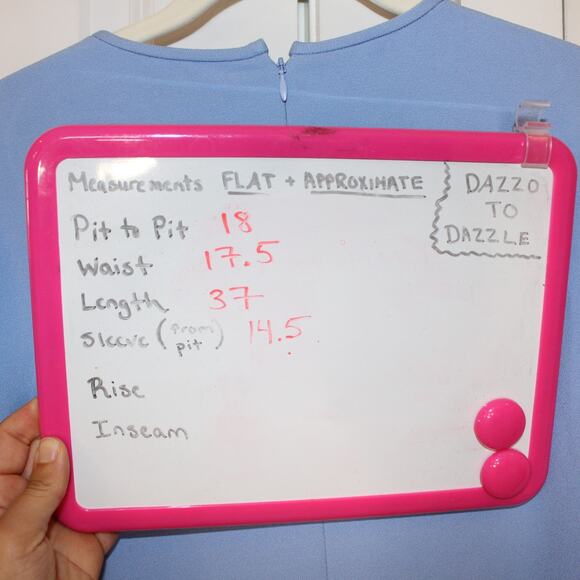 Measurements FLAT + APPROXIMATE
DAZZO
TO
DAZZLE
Pit to Pit 18
Waist 17.5
Length 37
Sleeve (from pit) 14.5
Rise
Inseam